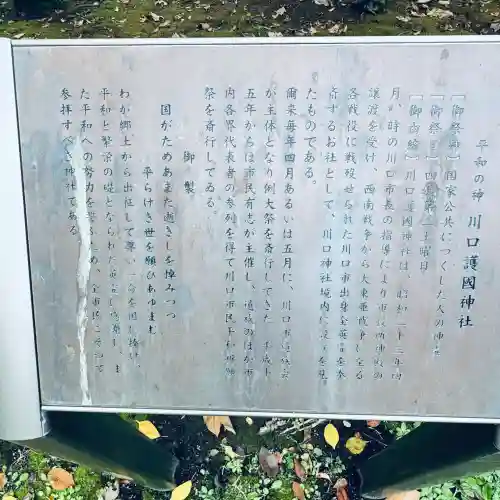 平和の神 川口護國神社
[御祭神]国家公共につくした人の神霊
[御祭日]四月第一土曜日
[御由緒]川口護國神社は、昭和二十三年四
月、時の川口市長の指導により市
譲渡を受け、西南戦争から大東亜戦争に至る
各戦役に戦歿せられた川口市出身
斎するお社として、川口神社境内に
たものである。
爾来毎年四月あるいは五月に、川口市
が主体となり例大祭を斎行してきた
五年からは市民有志が主催し、遺族のほか市
内各界代表者の参列を得て川口市民平和
祭を斎行してゐる。
御製
国がためあまた逝きしを悼みつつ
平らけき世を願ひあゆまむ
わが郷土から出征して尊い一命を国に捧げ、
平和と繁栄の礎となられた に感謝し、ま
た平和への努力を誓うため、全市民こぞって
参拝すべき神社である